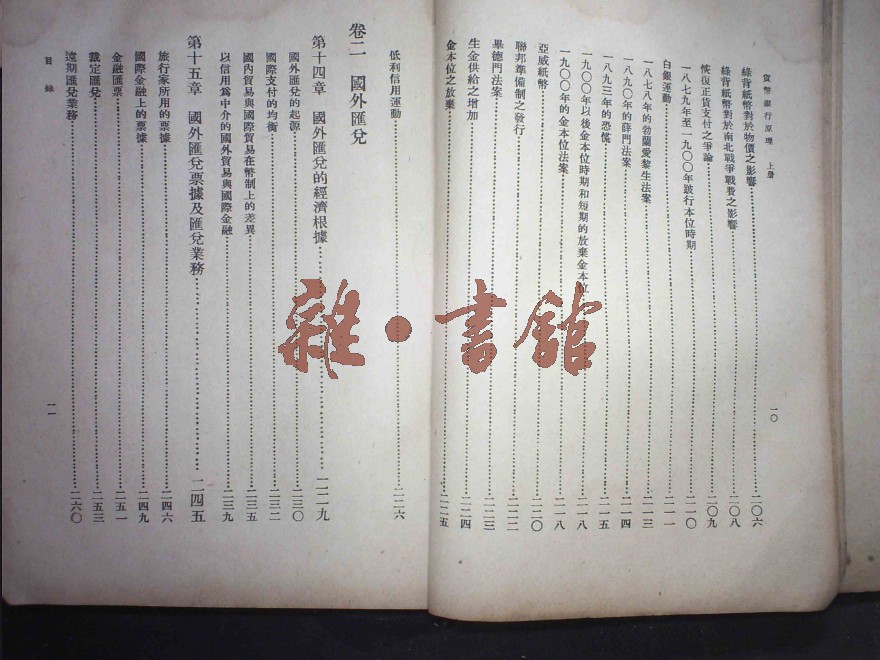 貨幣銀行原理　上册
綠背紙幣對於物價之影響……二〇六
綠背紙幣對於南北戰爭戰費之影響……二〇八
恢復正貨支付之爭論……二〇九
一八七九年至一九〇〇年跛行本位時期……二一〇
白銀運動……二一一
一八七八年的勃蘭愛黎生法案……二一三
一八九〇年的薛門法案……二一四
一八九三年的恐慌……二一五
一九〇〇年以後金本位時期和短期的放棄金本位……二一八
一九〇〇年的金本位法案……二一八
亞威紙幣……二二〇
聯邦準備制之發行……二二二
畢德門法案……二二三
生金供給之增加……二二四
金本位之放棄……二二五
一〇
低利信用運動……二二六
卷二　國外匯兌
第十四章　國外匯兌的經濟根據……二二九
國外匯兌的起源……二三〇
國際支付的均衡……二三二
國內貿易與國際貿易在幣制上的差異……二三五
以信用爲中介的國外貿易與國際金融……二三九
第十五章　國外匯兌票據及匯兌業務……二四五
旅行家所用的票據……二四六
國際金融上的票據……二四九
金融匯票……二五一
裁定匯兌……二五三
遠期匯兌業務……二六〇
目錄
一一
雜·書館